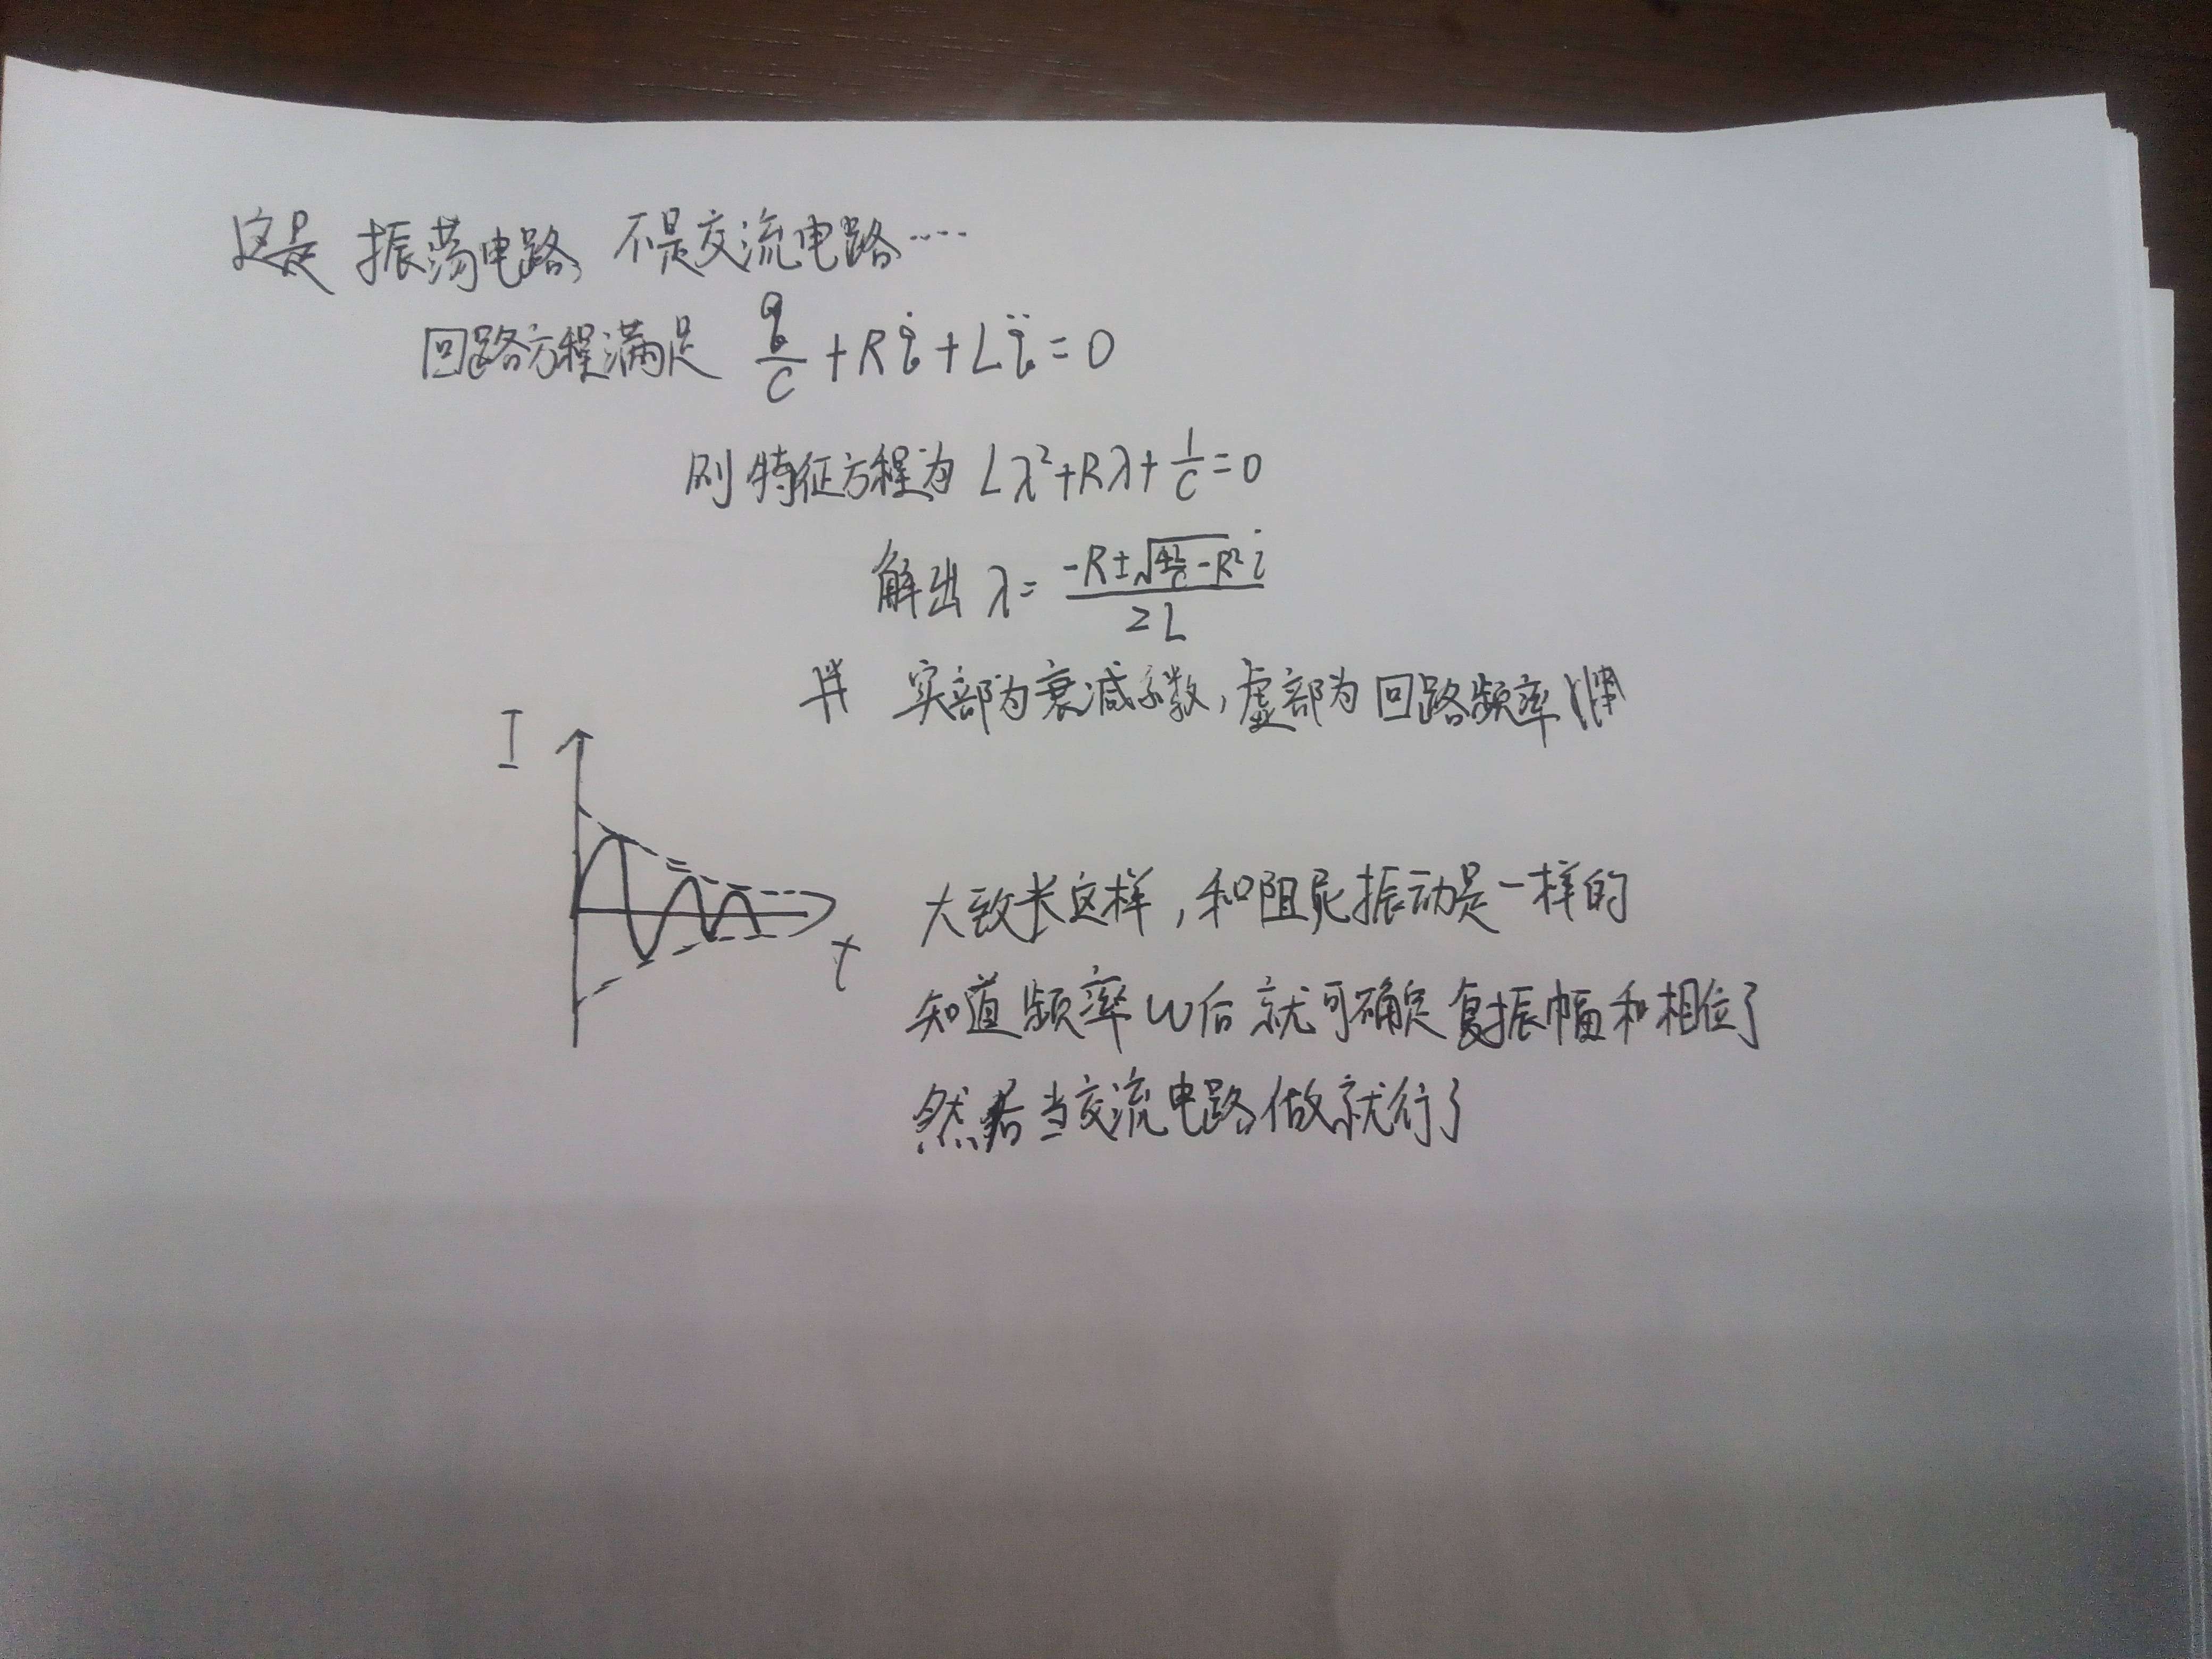 这是振荡电路,不是交流电路……
回路方程满足 q/C + Rq̇ + Lq̈ = 0
则特征方程为 Lλ²+Rλ+1/C=0
解出 λ= (-R±√(4L/C-R²) i)/2L
实部为衰减系数,虚部为回路频率
I
t
大致长这样,和阻尼振动是一样的
知道频率ω后就可确定复振幅和相位了
然后当交流电路做就行了